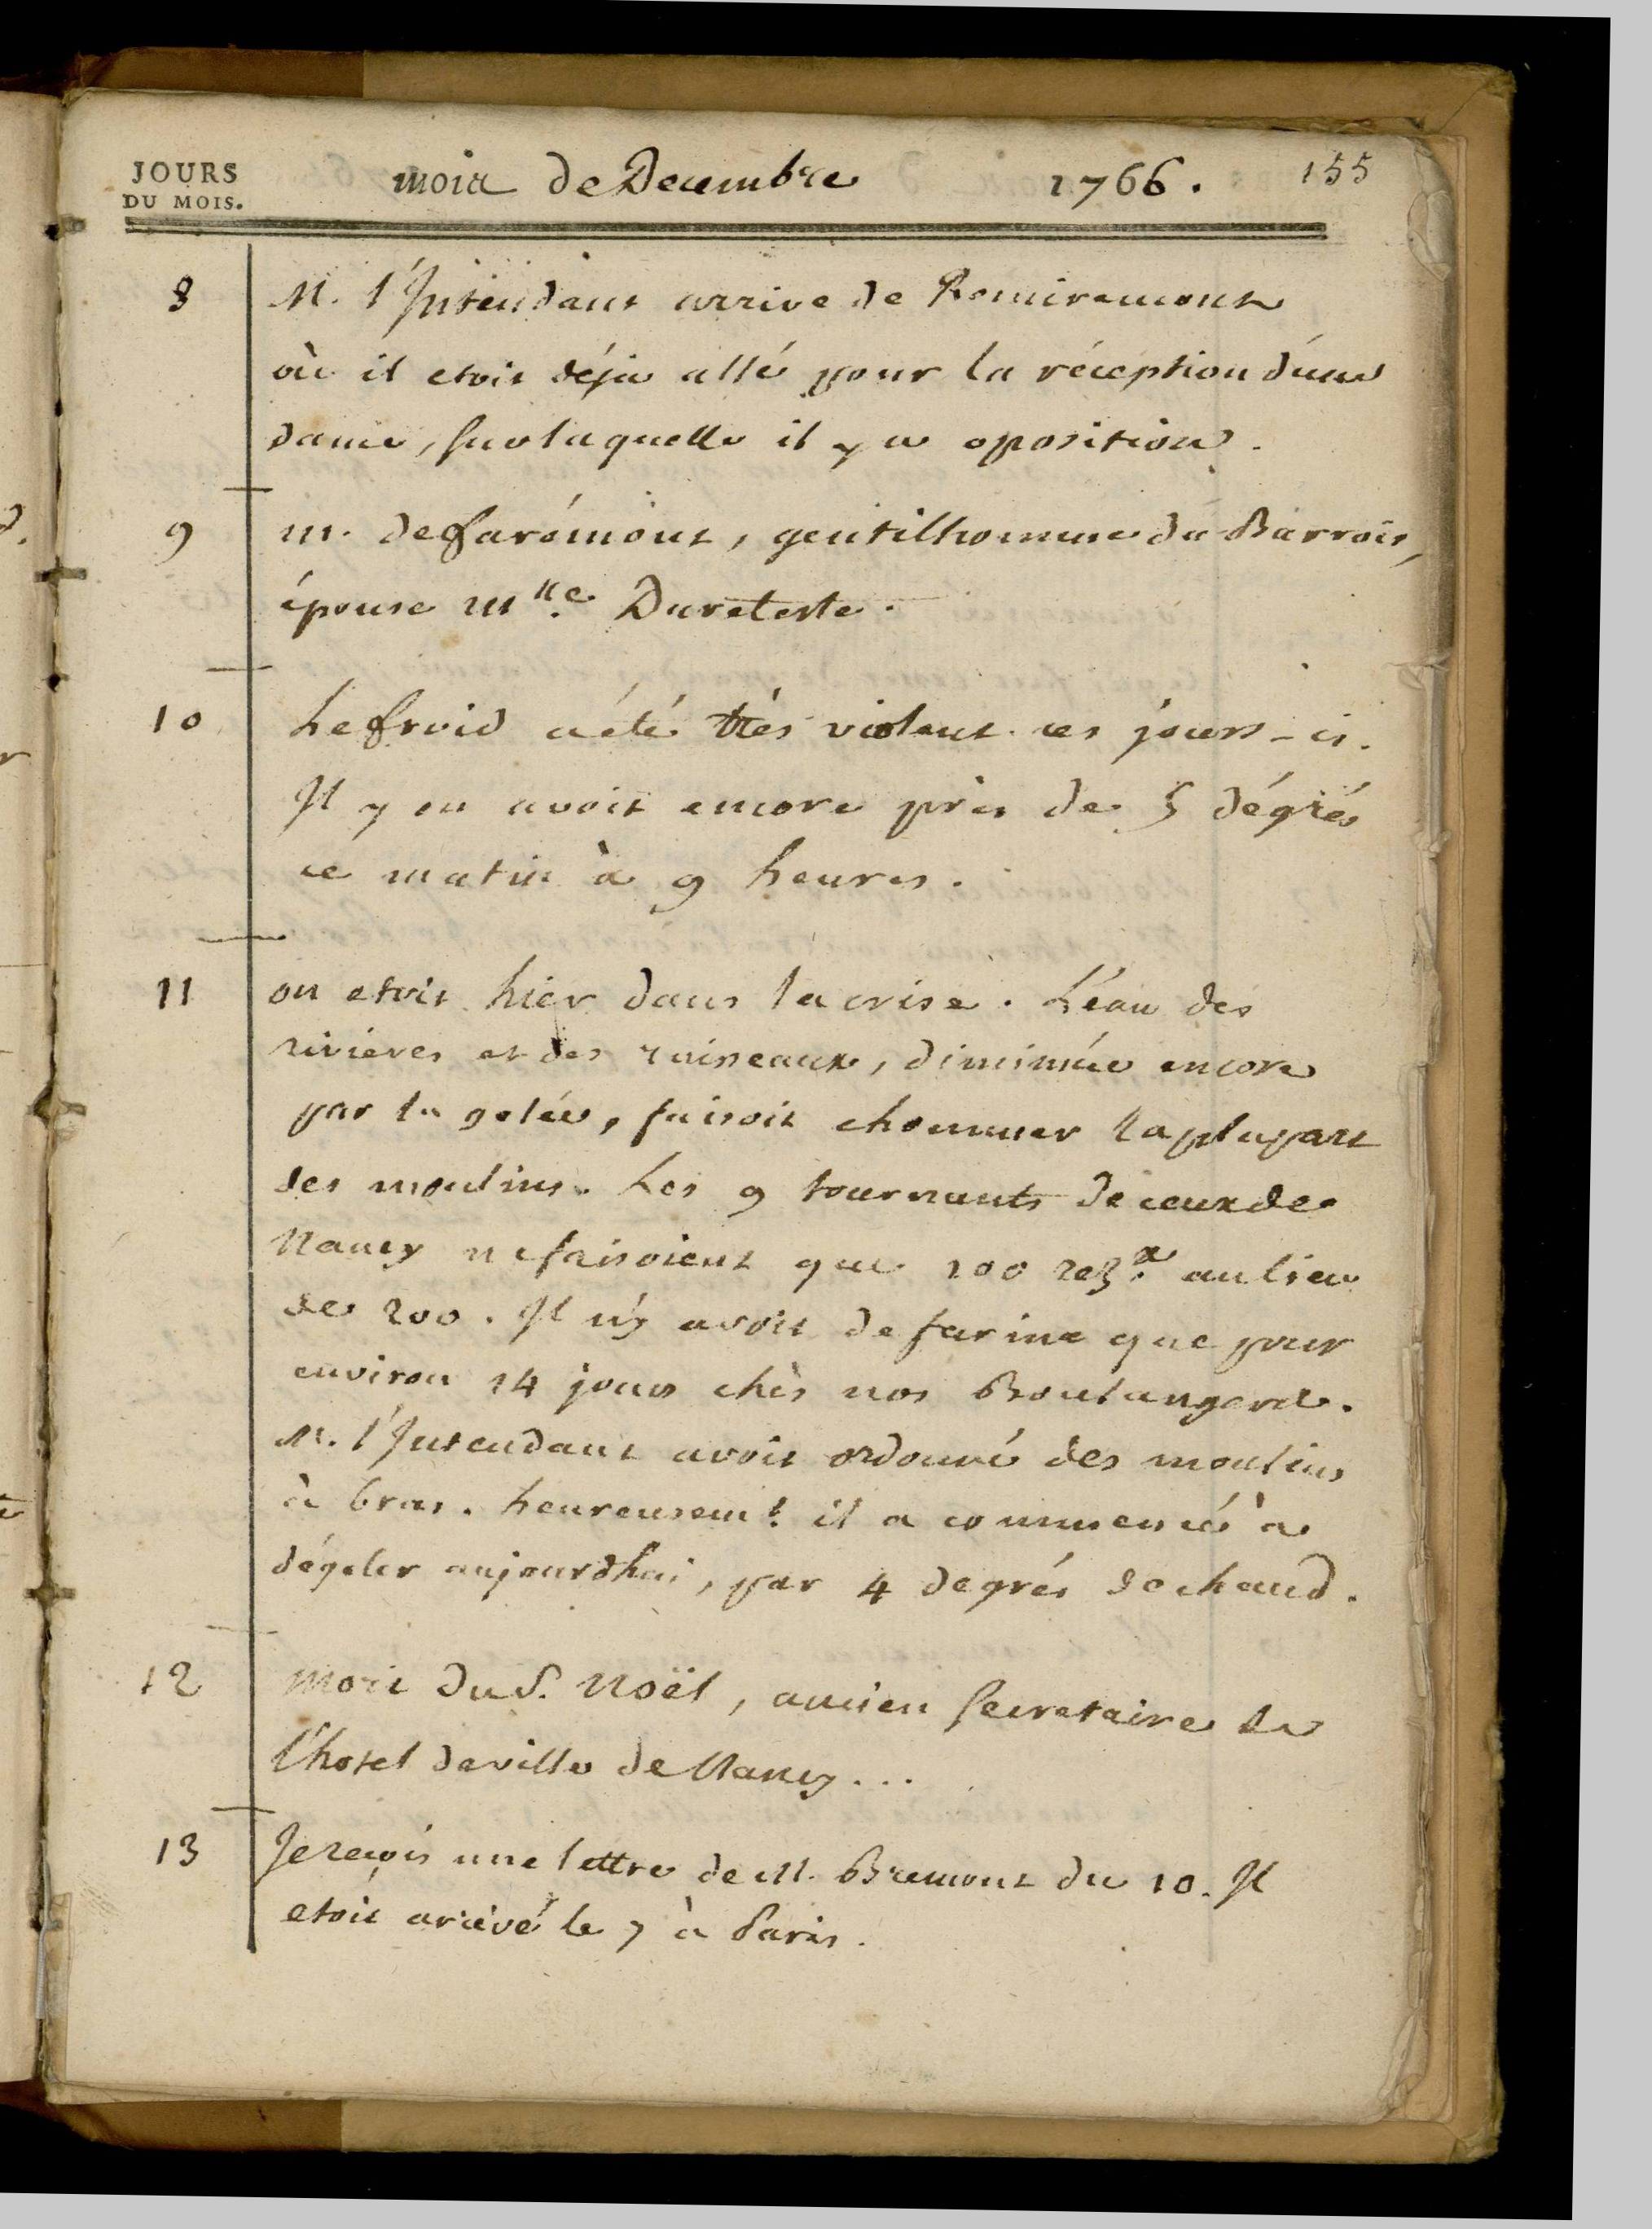 JOURS
DU MOIS.
mois de Decembre 1766. 155
8 M. l'Intendant arrive de Remiremont
où il etoit déja allé pour la réception d'une
dame, sur laquelle il y a oposition.
9 m. de farémont, gentilhomme du Barrois,
épouse mlle. Dureteste.
10 Le froid a été très violent ces jours-ci.
Il y en avoit encore près de 5 dégrés
ce matin à 9 heures.
11 on etoit hier dans la crise. L'eau des
rivières et des ruisseaux, diminuée encore
par la gelée, faisoit chommer la plupart
des moulins. Les 9 tournants de ceux de
Nancy ne faisoient que 100 rez.x au lieu
de 200. Il n'y avoit de farine que pour
environ 14 jours chès nos Boulangers.
M. l'Intendant avoit ordonné des moulins
à bras. heureusemt. il a commencé à
dégeler aujourdhui, par 4 degrés de chaud.
12 Mort du S. Noël, ancien Secretaire de
l'hotel de ville de Nancy...
13 Je reçois une lettre de M. Bremont du 10. Il
etoit arrivé le 7 à Paris.